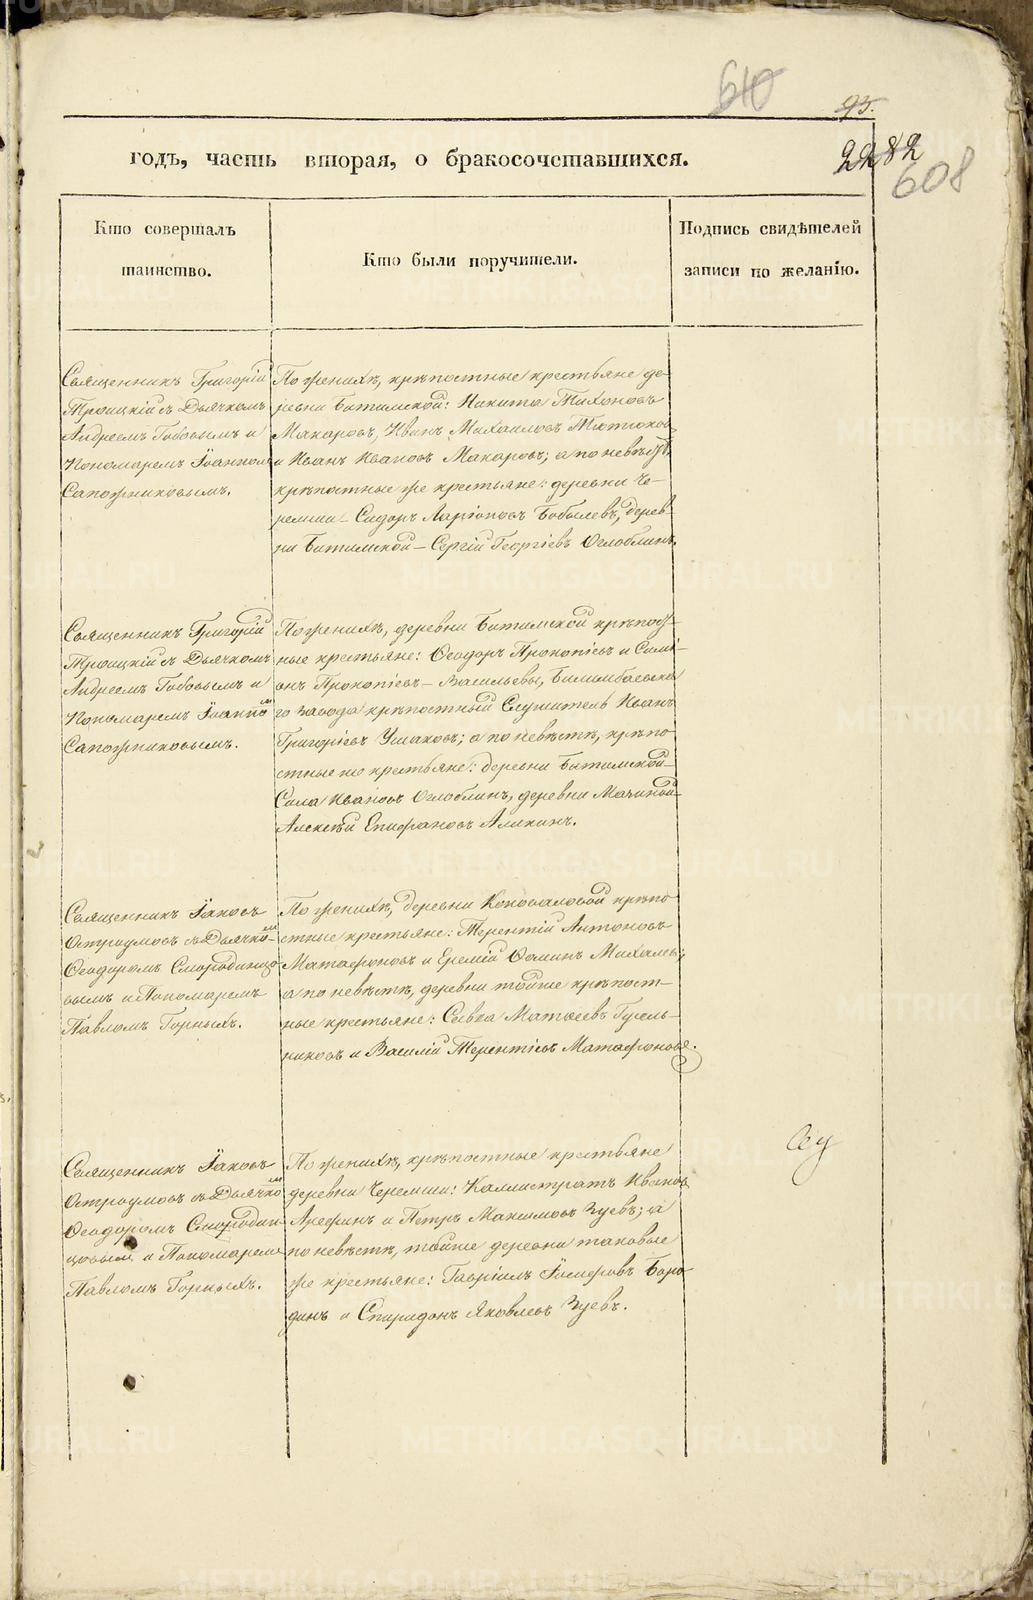 610
95.
годъ, часть вторая, о бракосочетавшихся.
2282
608
Кто совершалъ
таинство.
Кто были поручители.
Подпись свидѣтелей
записи по желанію.
Священникъ Григорій
Троицкій съ Дьячкомъ
Андреемъ Бабовымъ и
Пономаремъ Іоанномъ
Сапожниковымъ.
По женихѣ, крѣпостные крестьяне де-
ревни Битимской: Никита Тихоновъ
Макаровъ, Иванъ Михаиловъ Тютюковъ
и Иванъ Ивановъ Макаровъ; а по невѣстѣ,
крѣпостные же крестьяне: деревни Че-
ремши – Сидоръ Ларіоновъ Бобылевъ, дерев-
ни Битимской – Сергій Георгіевъ Оглоблинъ.
Священникъ Григорій
Троицкій съ Дьячкомъ
Андреемъ Бабовымъ и
Пономаремъ Іоанно
Сапожниковымъ.
По женихѣ, деревни Битимской крѣпост-
ные крестьяне: Ѳеодоръ Прокопіевъ и Симе-
онъ Прокопіевъ – Васильевы, Билимбаевска
го завода крѣпостный Служитель Иванъ
Григоріевъ Ушаковъ; а по невѣстѣ, крѣпо
стные же крестьяне: деревни Битимской –
Сила Ивановъ Оглоблинъ, деревни Мачиной –
Алексѣй Епифановъ Аликинъ.
Священникъ Іаковъ
Остроумовъ съ Дьячко-
Ѳеодоромъ Смородинцо-
вымъ и Пономаремъ
Павломъ Горныхъ.
По женихѣ, деревни Коноваловой крѣпо
стные крестьяне: Терентій Антоновъ
Матафоновъ и Еремій Ѳоминъ Михалевъ;
а по невѣстѣ, деревни тойже крѣпост-
ные крестьяне: Савва Матвеевъ Гусель-
никовъ и Василій Терентіевъ Матафоновъ.
Священникъ Іаковъ
Остроумовъ съ Дьячко
Ѳеодоромъ Смородин
цовымъ и Пономаремъ
Павломъ Горныхъ.
По женихѣ, крѣпостные крестьяне
деревни Черемши: Каллистратъ Ивановъ
Арефинъ и Петръ Максимовъ Зуевъ; а
по невѣстѣ, тойже деревни таковые
же крестьяне: Гавріилъ Іосифовъ Боро
динъ и Спиридонъ Яковлевъ Зуевъ.
METRIKI.GASO-URAL.RU